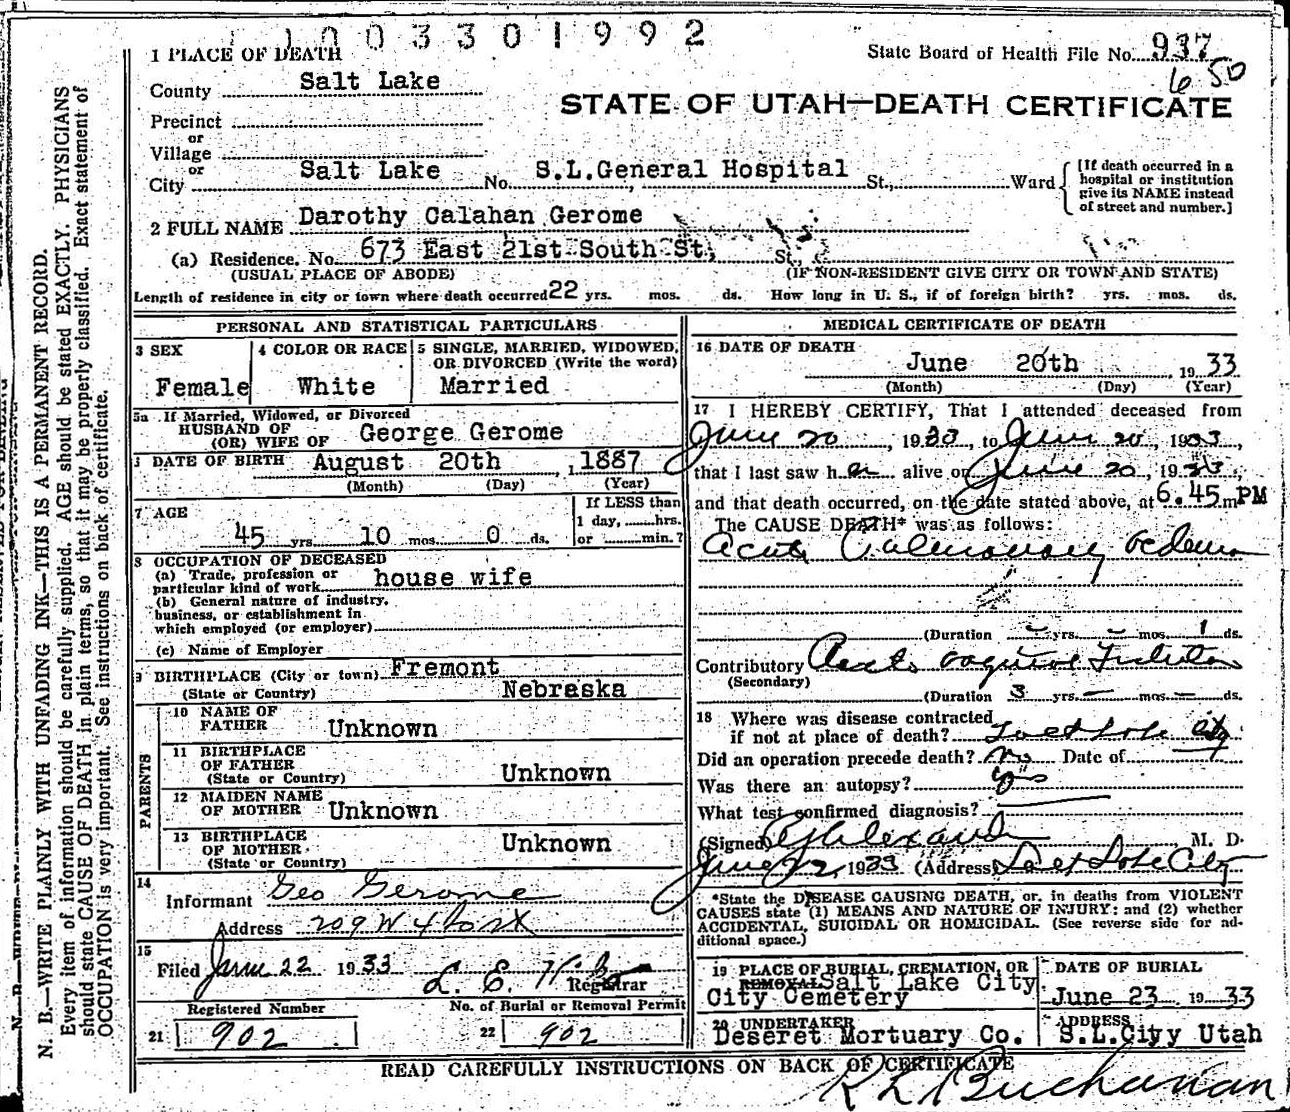 1003301992
1 PLACE OF DEATH
State Board of Health File No. 937
6 50
County Salt Lake
STATE OF UTAH—DEATH CERTIFICATE
Precinct
or
Village
or
City Salt Lake No. S.L.General Hospital St., Ward
[If death occurred in a
hospital or institution
give its NAME instead
of street and number.]
2 FULL NAME Darothy Calahan Gerome
(a) Residence. No. 673 East 21st South St, St.,
(USUAL PLACE OF ABODE) (IF NON-RESIDENT GIVE CITY OR TOWN AND STATE)
Length of residence in city or town where death occurred 22 yrs. mos. ds. How long in U. S., if of foreign birth? yrs. mos. ds.
PERSONAL AND STATISTICAL PARTICULARS
3 SEX
Female
4 COLOR OR RACE
White
5 SINGLE, MARRIED, WIDOWED,
OR DIVORCED (Write the word)
Married
5a If Married, Widowed, or Divorced
HUSBAND OF
(OR) WIFE OF George Gerome
DATE OF BIRTH August 20th, 1887
(Month) (Day) (Year)
7 AGE
45 yrs. 10 mos. 0 ds.
If LESS than
1 day, hrs.
or min.?
8 OCCUPATION OF DECEASED
(a) Trade, profession or
particular kind of work house wife
(b) General nature of industry,
business, or establishment in
which employed (or employer)
(c) Name of Employer
9 BIRTHPLACE (City or town) Fremont
(State or Country) Nebraska
PARENTS
10 NAME OF
FATHER Unknown
11 BIRTHPLACE
OF FATHER
(State or Country) Unknown
12 MAIDEN NAME
OF MOTHER Unknown
13 BIRTHPLACE
OF MOTHER
(State or Country) Unknown
14
Informant Geo Gerome
Address 209 W 4
15
Filed June 22 1933 L. E.
Registrar
Registered Number
21 902
No. of Burial or Removal Permit
22 902
MEDICAL CERTIFICATE OF DEATH
16 DATE OF DEATH
June 20th 1933
(Month) (Day) (Year)
17 I HEREBY CERTIFY, That I attended deceased from
June 20, 1933, to June 20, 1933,
that I last saw her alive on June 20, 1933,
and that death occurred, on the date stated above, at 6.45 m PM
The CAUSE DEATH* was as follows:
Acute Pulmonary oedema
(Duration – yrs. – mos. 1 ds.
Contributory Acute
(Secondary)
(Duration 3 yrs. – mos. – ds.
18 Where was disease contracted
if not at place of death? Salt Lake City
Did an operation precede death? No Date of
Was there an autopsy? yes
What test confirmed diagnosis?
(Signed) Alexander M. D.
June 22, 1933 (Address) Salt Lake City
*State the DISEASE CAUSING DEATH, or, in deaths from VIOLENT
CAUSES state (1) MEANS AND NATURE OF INJURY; and (2) whether
ACCIDENTAL, SUICIDAL OR HOMICIDAL. (See reverse side for ad-
ditional space.)
19 PLACE OF BURIAL, CREMATION, OR
REMOVAL Salt Lake City
City Cemetery
DATE OF BURIAL
June 23 1933
20 UNDERTAKER
Deseret Mortuary Co.
ADDRESS
S.L.City Utah
READ CAREFULLY INSTRUCTIONS ON BACK OF CERTIFICATE
Buchanan
N. B.—WRITE PLAINLY WITH UNFADING INK—THIS IS A PERMANENT RECORD.
Every item of information should be carefully supplied. AGE should be stated EXACTLY. PHYSICIANS
should state CAUSE OF DEATH in plain terms, so that it may be properly classified. Exact statement of
OCCUPATION is very important. See instructions on back of certificate.